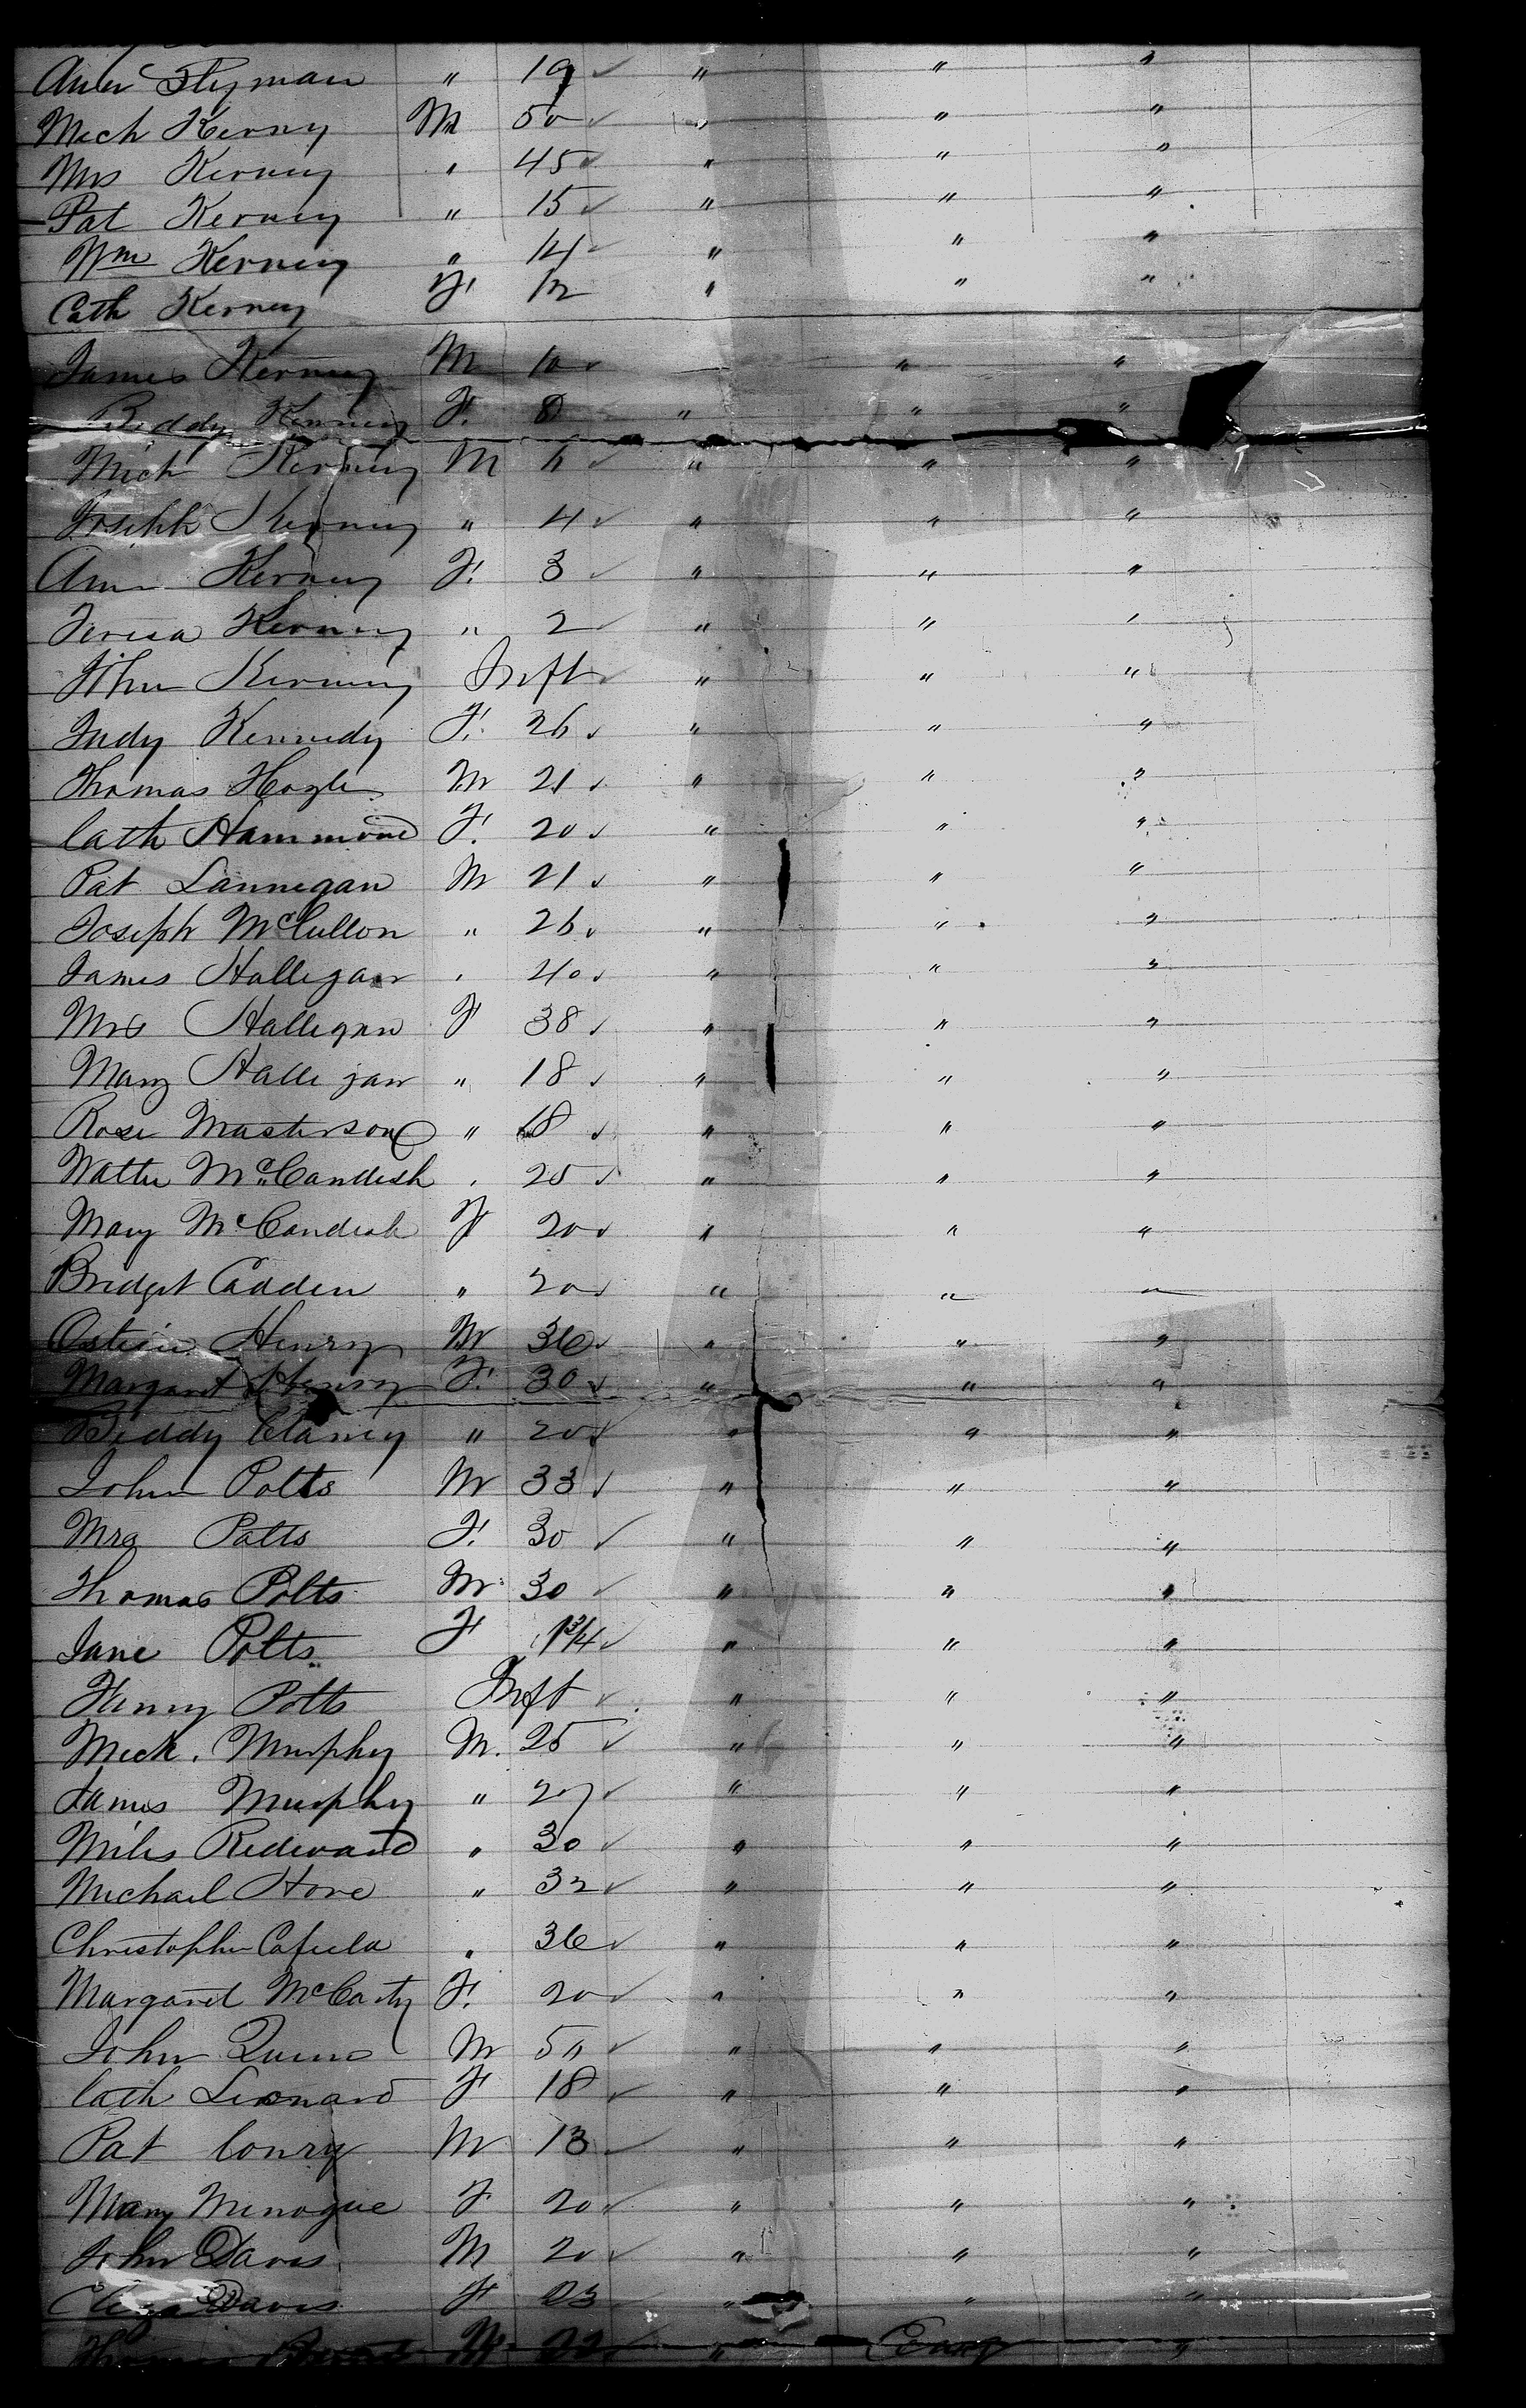 Ann Flyman " 19 " " "
Mich Kerny M 50 " " "
Mrs Kerney " 45 " " "
Pat Kerney " 15 " " "
Wm Kerney " 14 " " "
Cath Kerney F. 12 " " "
James Kerney M 10 " "
Biddy Kerney F. 8 " " "
Mich Kerney M " " "
Joseph Kerney " 4 " " "
Ann Kerney F. 3 " " "
Teresa Kerney " 2 " " "
John Kerney Inft " " "
Judy Kennedy F. 26 " " "
Thomas M 21 " " "
Cath Hammond F. 20 " " "
Pat Lannegan M 21 " " "
Joseph McCullon " 26 " " "
James Halligan " 40 " " "
Mrs Halligan F 38 " " "
Mary Halligan " 18 " " "
Rose Masterson " 18 " " "
Walter McCandish " 25 " " "
Mary McCandish F 20 " " "
Bridget Cadden " 20 " " "
Ostein Henry M 36 " " "
Margaret Henry F. 30 " " "
Biddy Clancy " 20 " " "
John Potts M 33 " " "
Mrs Potts F. 30 " " "
Thomas Potts M 30 " " "
Jane Potts F 1 3/4 " " "
Fanny Potts Inft " " "
Mick. Murphy M. 25 " " "
James Murphy " 27 " " "
Miles " 30 " " "
Michael Hore " 32 " " "
Christopher " 36 " " "
Margaret McCarty F. 20 " " "
John Quinn M " " "
Cath Leonard F 18 " " "
Pat Conry M 13 " " "
Mary Minogue F 20 " " "
John Davis M 20 " " "
Eliza Davis F 23 " " "
Thomas M 22 " "